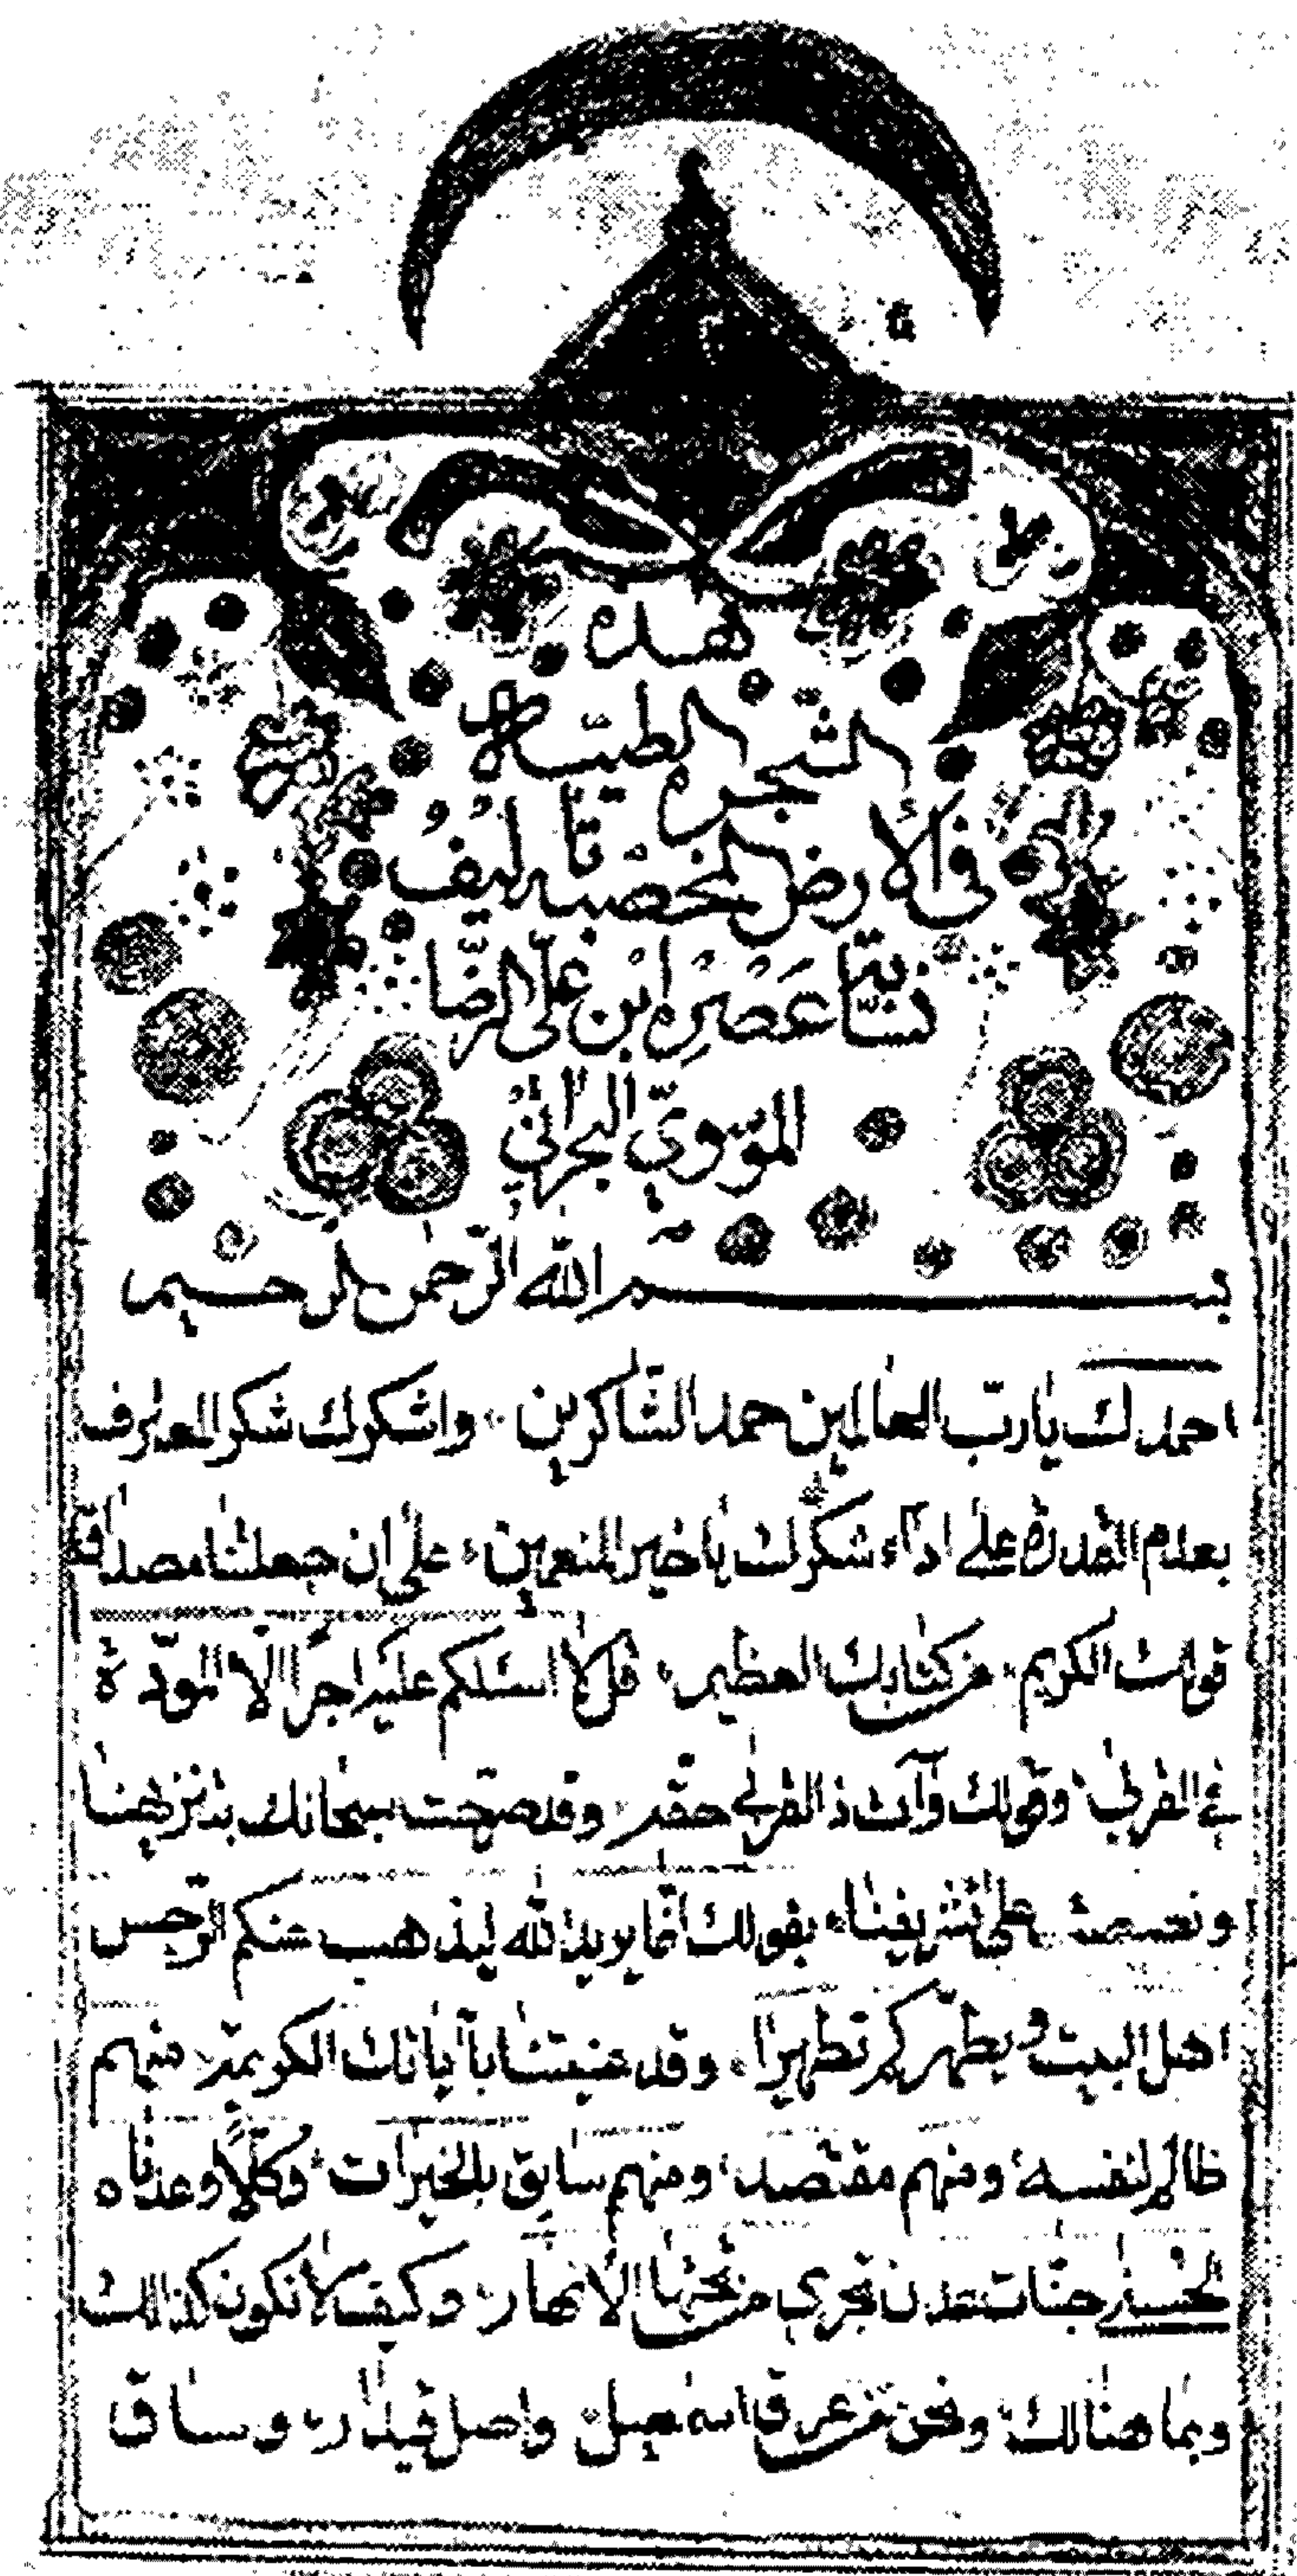 هذه
الشجرة الطيبة
في الأرض المخصبة تأليف
نسّابة عصره ابن علي الرضا
الموسوي البحراني
بسم الله الرحمن الرحيم
احمدك يا رب العالمين حمد الشاكرين، واشكرك شكر المعترف
بعدم القدرة على اداء شكرك يا خير المنعمين، على ان جعلتنا مصداق
قولك الكريم، من كتابك العظيم، قل لا اسئلكم عليه اجرًا الّا المودّة
في القربى، وقولك وآت ذا القربى حقه، وقد صرّحت سبحانك بتنزيهنا
ونصصت على تشريفنا، بقولك انما يريد الله ليذهب عنكم الرجس
اهل البيت ويطهركم تطهيرا، وقد عنيتنا بآياتك الكريمة، منهم
ظالم لنفسه، ومنهم مقتصد، ومنهم سابق بالخيرات، وكلًا وعدناه
الحسنى جنات عدن تجري من تحتها الانهار، وكيف لا نكون كذلك
وبما هنالك، ونحن من عرق اسمعيل، واصل قيذار، وساق